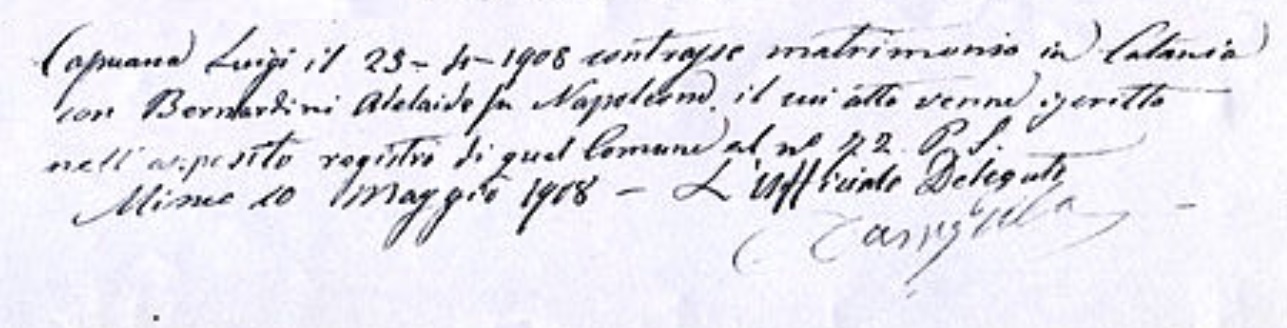 Capuana Luigi il 23-4-1908 contrasse matrimonio in Catania
con Bernardini Adelaide fu Napoleone, il cui atto venne iscritto
nell'apposito registro di quel Comune al nº 22. P. S.
Mineo 10 Maggio 1908 - L'Ufficiale Delegato